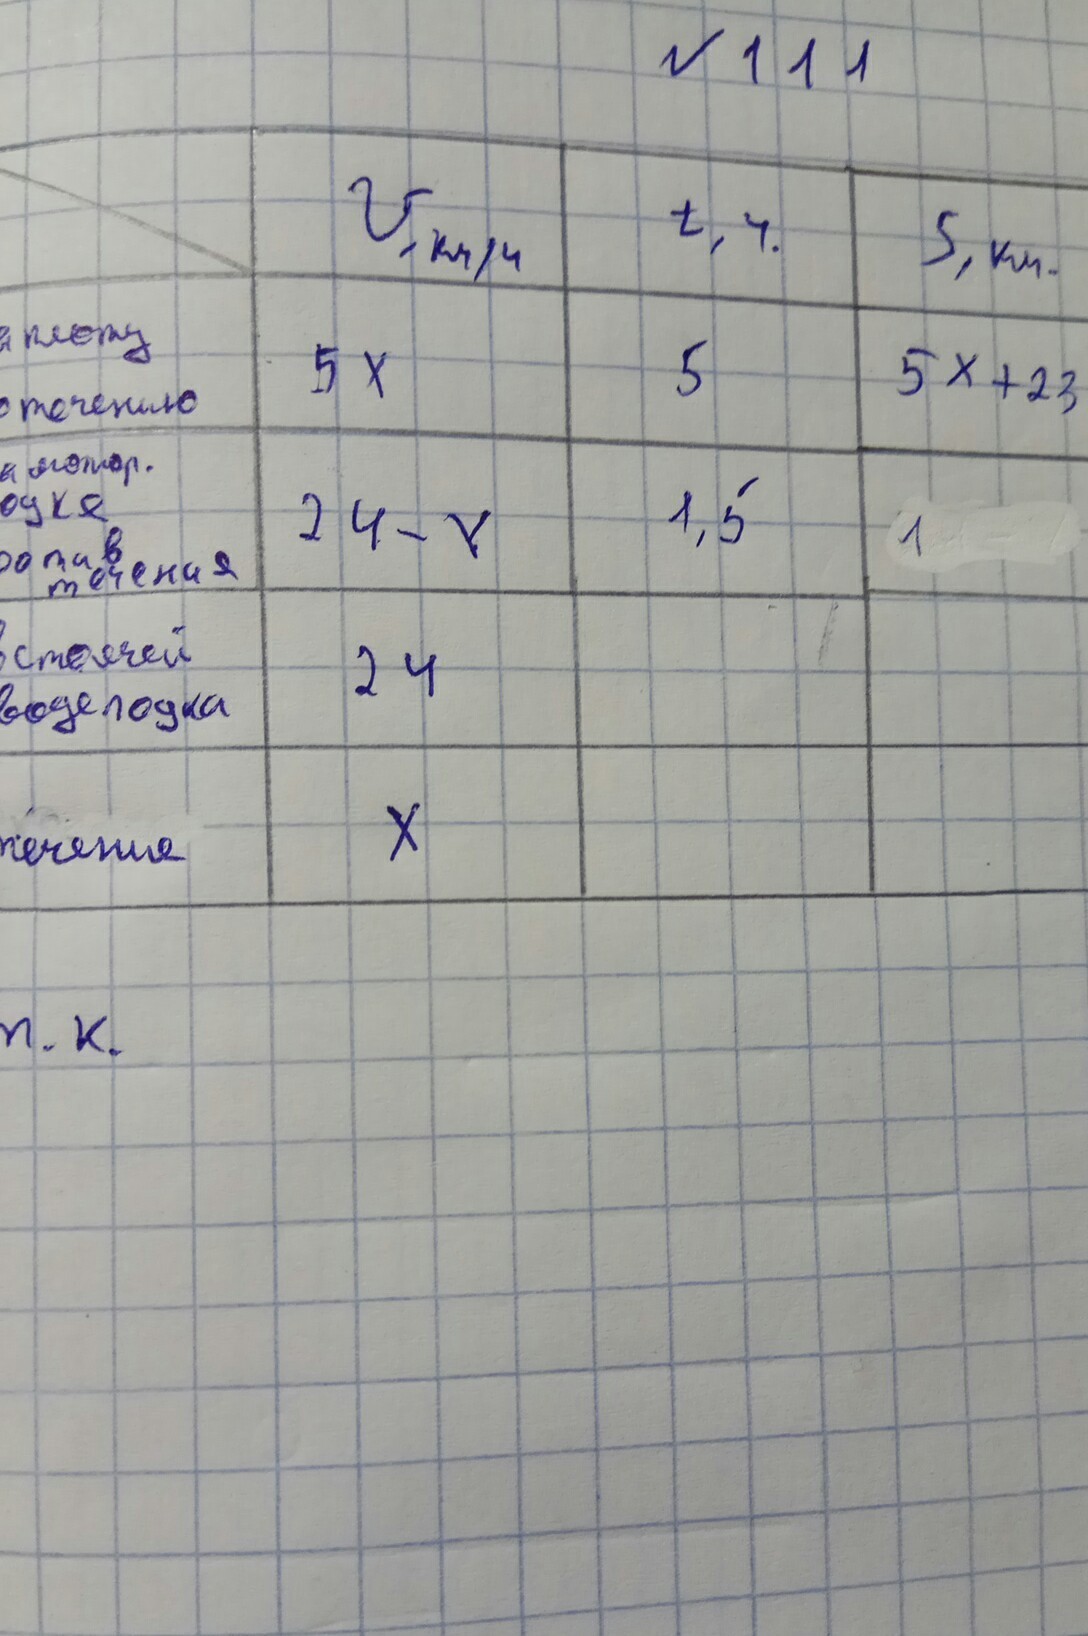 √ 1 1 1
V, км/ч
t, ч.
S, км.
а плоту
о течению
5 x
5
5 x + 23
а мотор.
одке
ротив
течения
24 - x
1,5
1
в стоячей
воде лодка
24
течения
x
т. к.